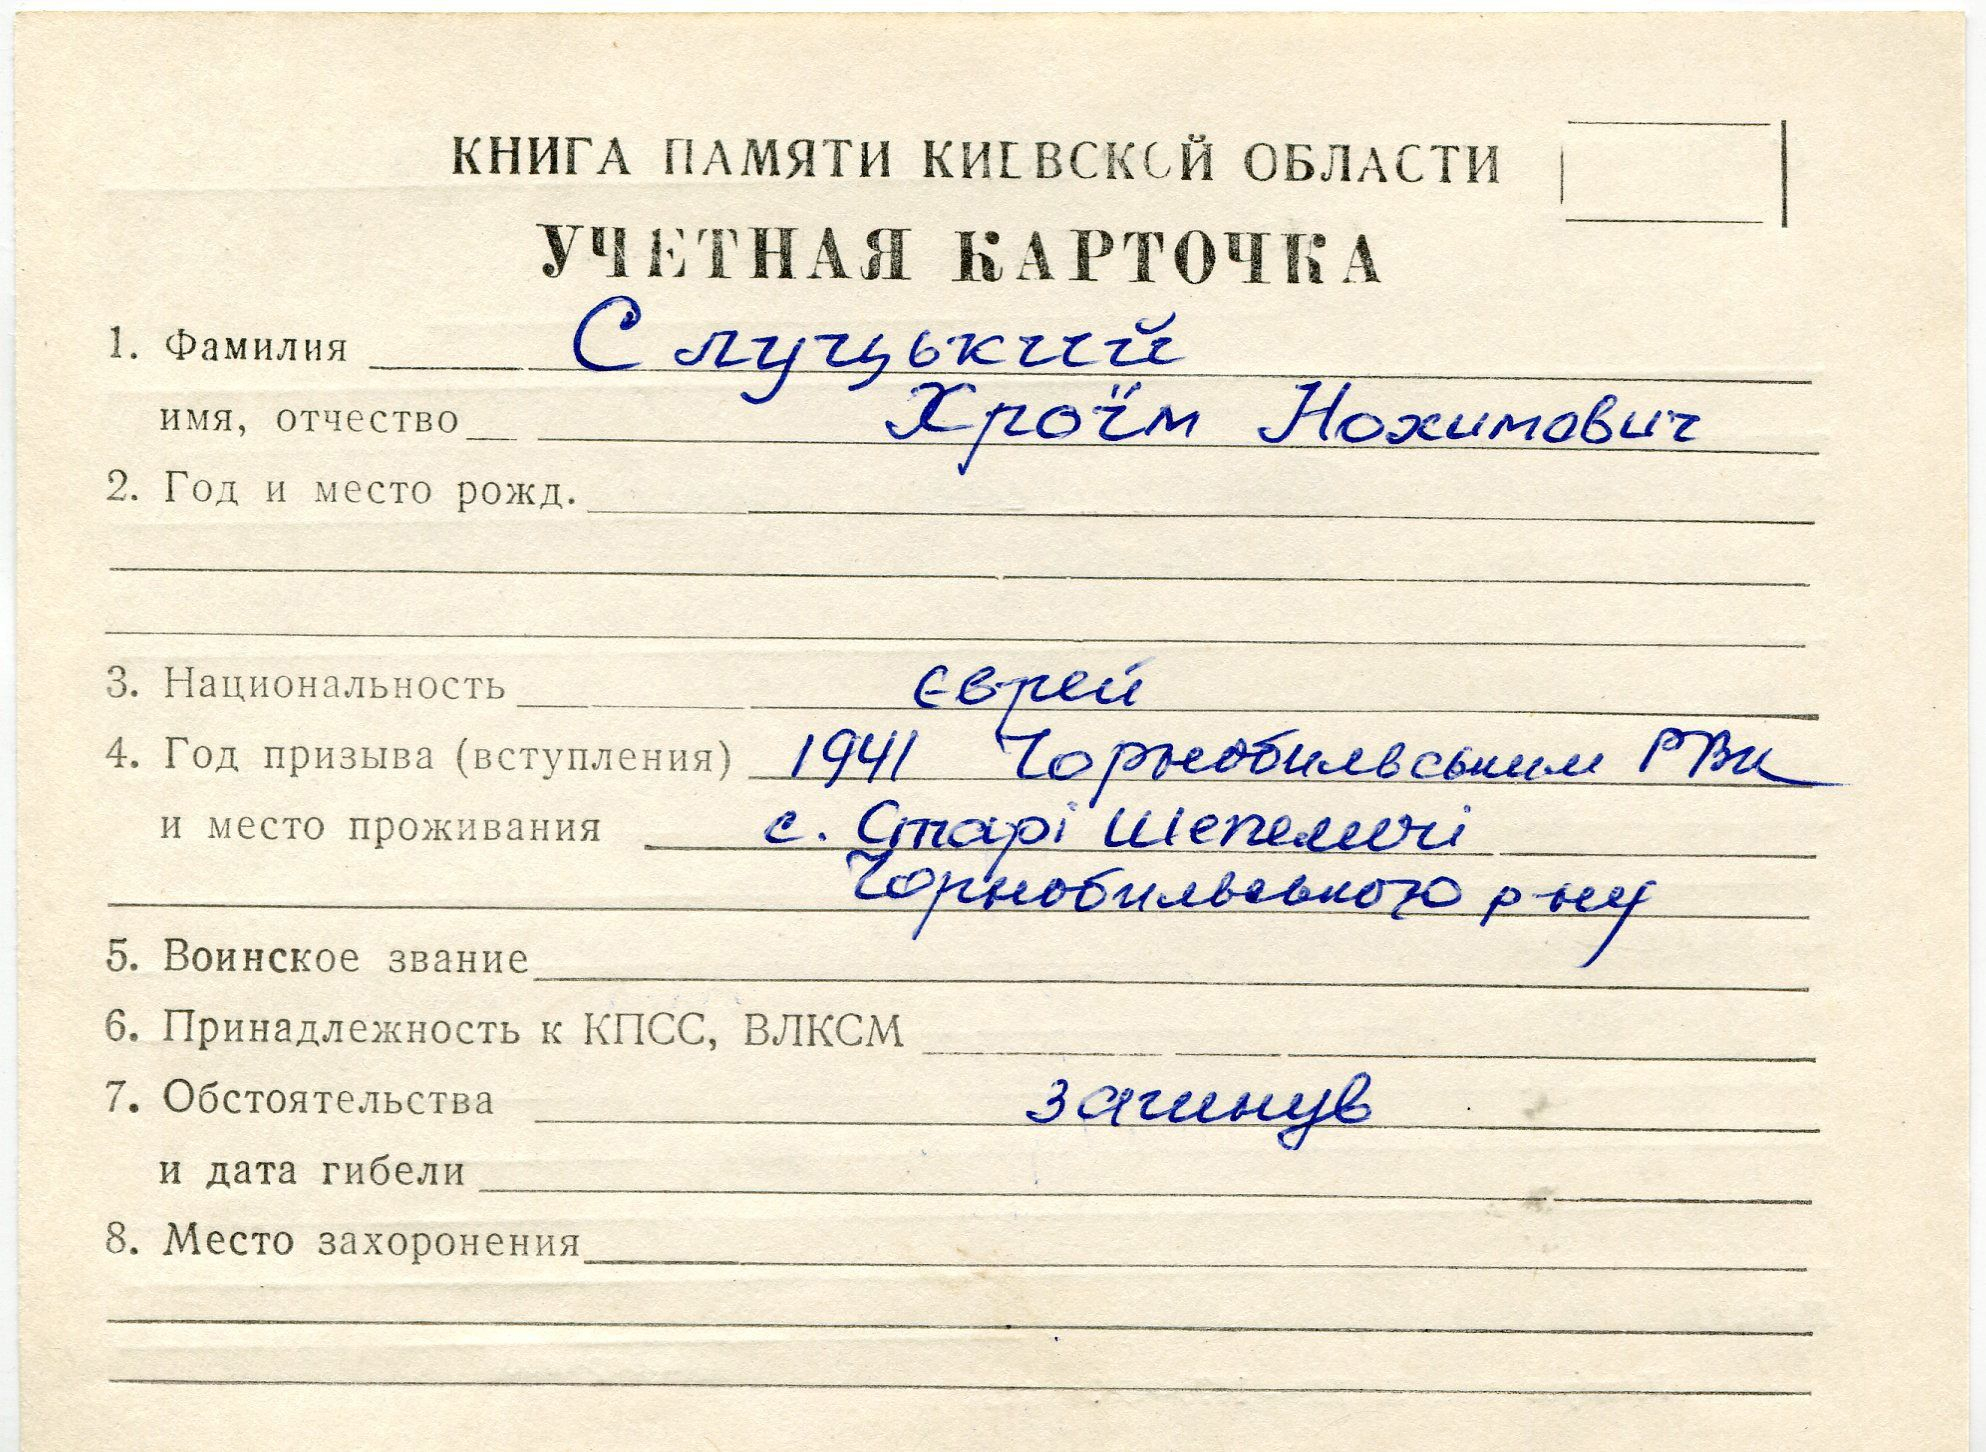 КНИГА ПАМЯТИ КИЕВСКОЙ ОБЛАСТИ
УЧЕТНАЯ КАРТОЧКА
1. Фамилия Слуцький
имя, отчество Хроїм Нохимович
2. Год и место рожд.
3. Национальность єврей
4. Год призыва (вступления) 1941 Чорнобильським РВК
и место проживания с. Старі Шепеличі
Чорнобильського р-ну
5. Воинское звание
6. Принадлежность к КПСС, ВЛКСМ
7. Обстоятельства загинув
и дата гибели
8. Место захоронения